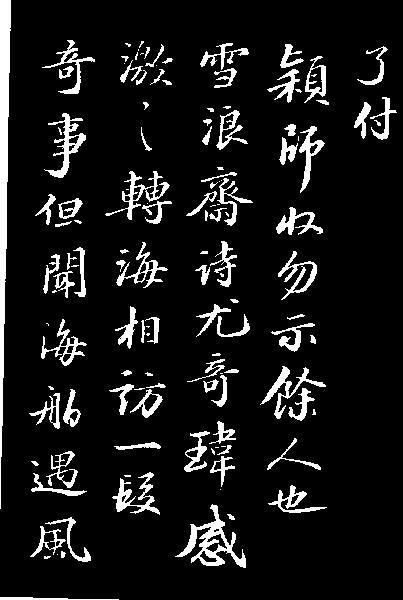 了付
穎師收勿示餘人也
雪浪齋詩尤奇瑋感
激〻轉海相訪一段
奇事但聞海舶遇風